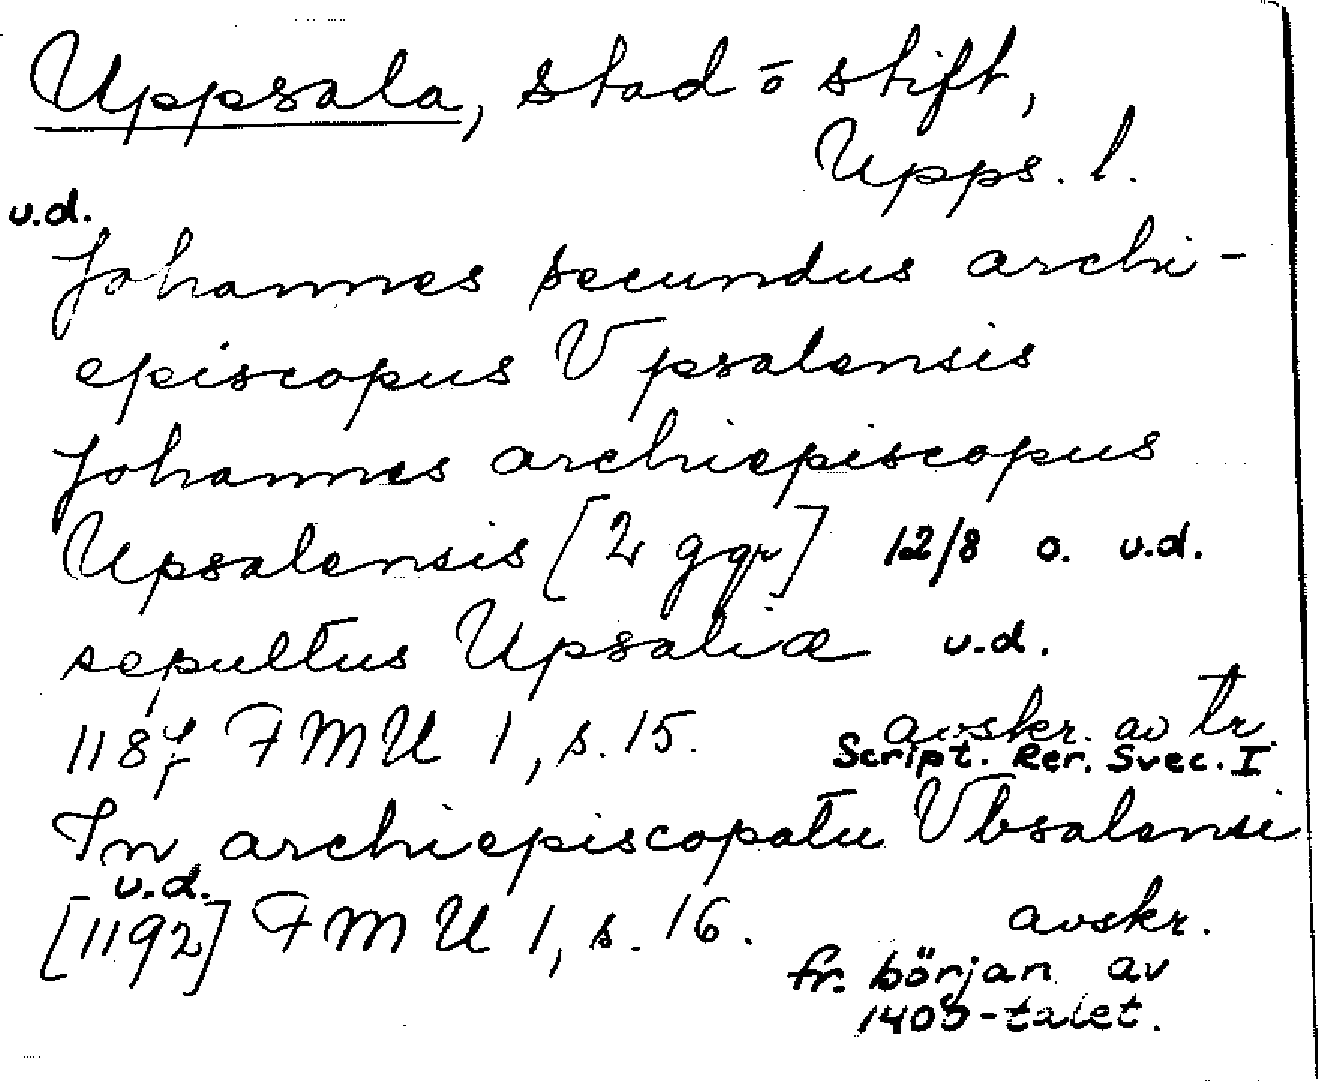 Uppsala, stad o stift,
Upps. l.
u.d.
Johannes secundus archi-
episcopus Vpsalensis
Johannes archiepiscopus
Upsalensis [2 ggr] 12/8 o. u.d.
sepultus Upsaliæ u.d.
1187 FMU 1, s. 15. avskr. av tr.
Script. Rer. Svec. I
In archiepiscopatu Vbsalensi
u.d.
[1192] FMU 1, s. 16. avskr.
fr. början av
1400-talet.